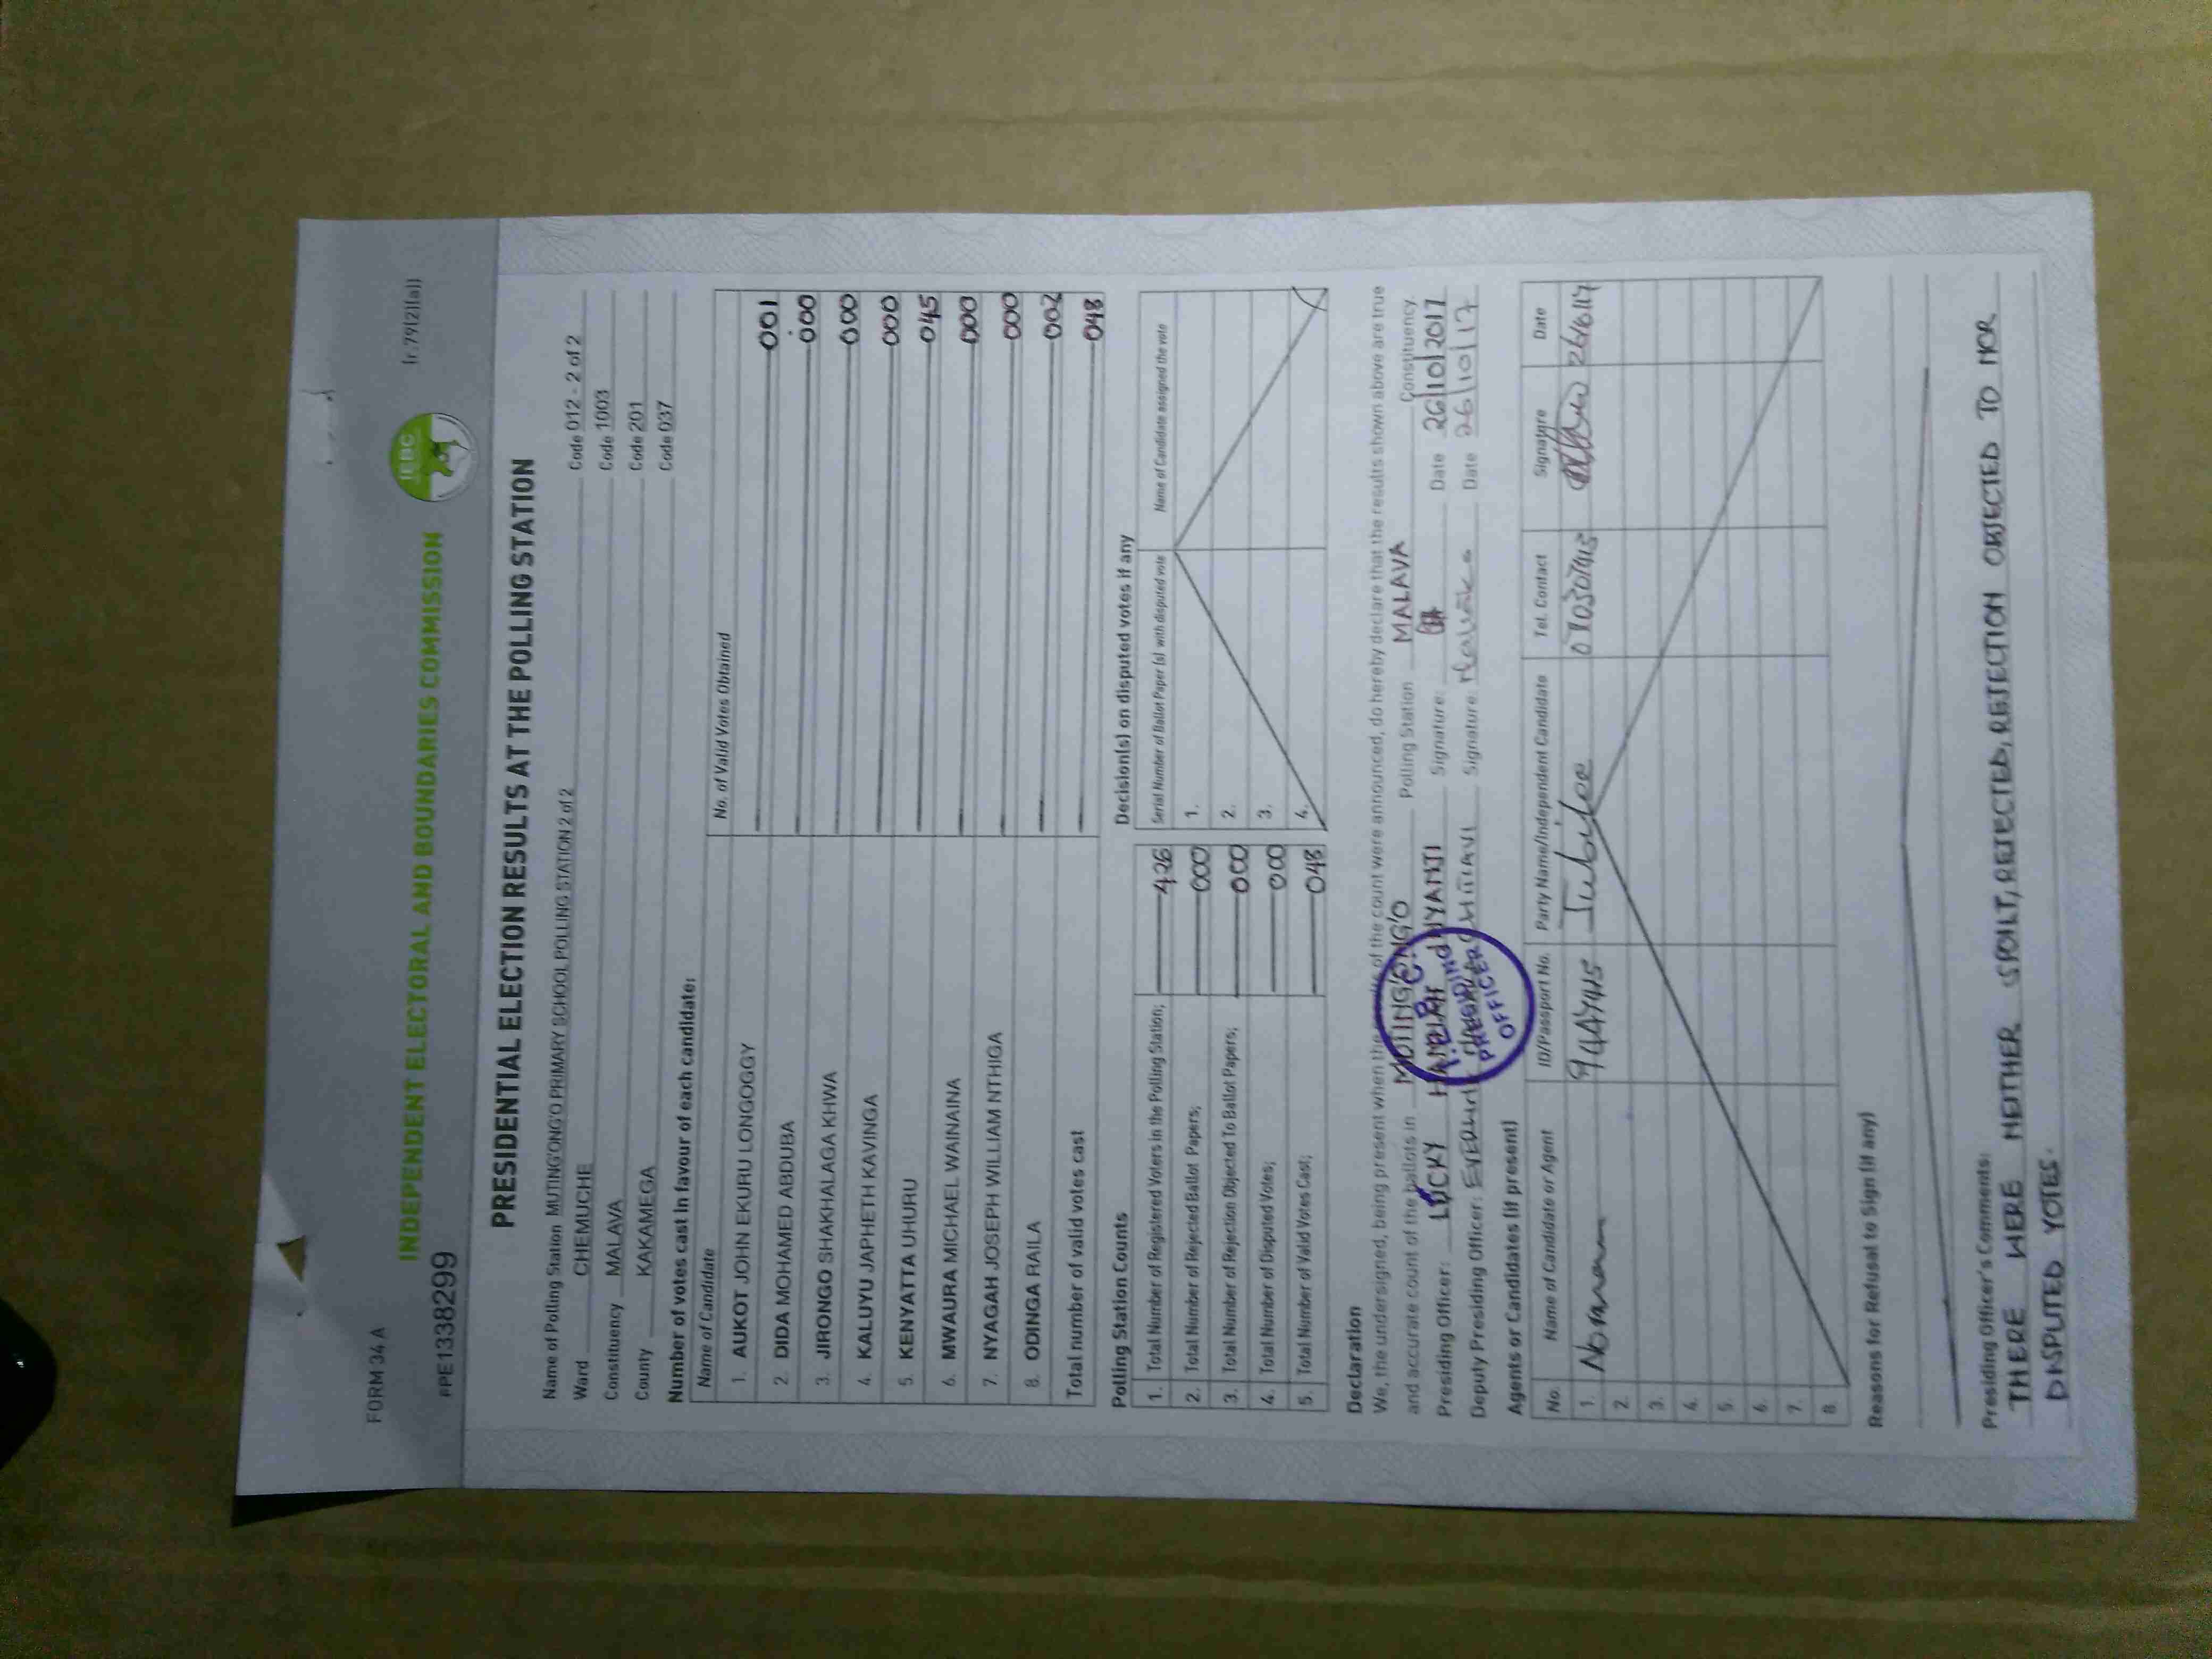 FORM 34 A
(r.79(2)(a))
IEBC
INDEPENDENT ELECTORAL AND BOUNDARIES COMMISSION
PPE1338299
PRESIDENTIAL ELECTION RESULTS AT THE POLLING STATION
Name of Polling Station MUTING'ONG'O PRIMARY SCHOOL POLLING STATION 2 of 2 Code 012 - 2 of 2
Ward CHEMUCHE Code 1003
Constituency MALAVA Code 201
County KAKAMEGA Code 037
Number of votes cast in favour of each candidate:
Name of Candidate No. of Valid Votes Obtained
1. AUKOT JOHN EKURU LONGOGGY 001
2. DIDA MOHAMED ABDUBA 000
3. JIRONGO SHAKHALAGA KHWA 000
4. KALUYU JAPHETH KAVINGA 000
5. KENYATTA UHURU 045
6. MWAURA MICHAEL WAINAINA 000
7. NYAGAH JOSEPH WILLIAM NTHIGA 000
8. ODINGA RAILA 002
Total number of valid votes cast 048
Polling Station Counts
1. Total Number of Registered Voters in the Polling Station; 426
2. Total Number of Rejected Ballot Papers; 000
3. Total Number of Rejection Objected To Ballot Papers; 000
4. Total Number of Disputed Votes; 000
5. Total Number of Valid Votes Cast; 048
Decision(s) on disputed votes if any
Serial Number of Ballot Paper (s) with disputed vote Name of Candidate assigned the vote
1.
2.
3.
4.
Declaration
We, the undersigned, being present when the results of the count were announced, do hereby declare that the results shown above are true
and accurate count of the ballots in MUTING'ONG'O Polling Station MALAVA Constituency.
Presiding Officer: LUCKY NYAMTI Signature: Date 26/10/2017
Deputy Presiding Officer: Signature: Date 26/10/17
I.E.B.C.
PRESIDING
OFFICER
Agents or Candidates (if present)
No. Name of Candidate or Agent ID/Passport No. Party Name/Independent Candidate Tel. Contact Signature Date
1. Jubilee
2.
3.
4.
5.
6.
7.
8.
Reasons for Refusal to Sign (if any)
Presiding Officer's Comments:
THERE WERE NEITHER SPOILT, REJECTED, REJECTION OBJECTED TO NOR
DISPUTED VOTES.